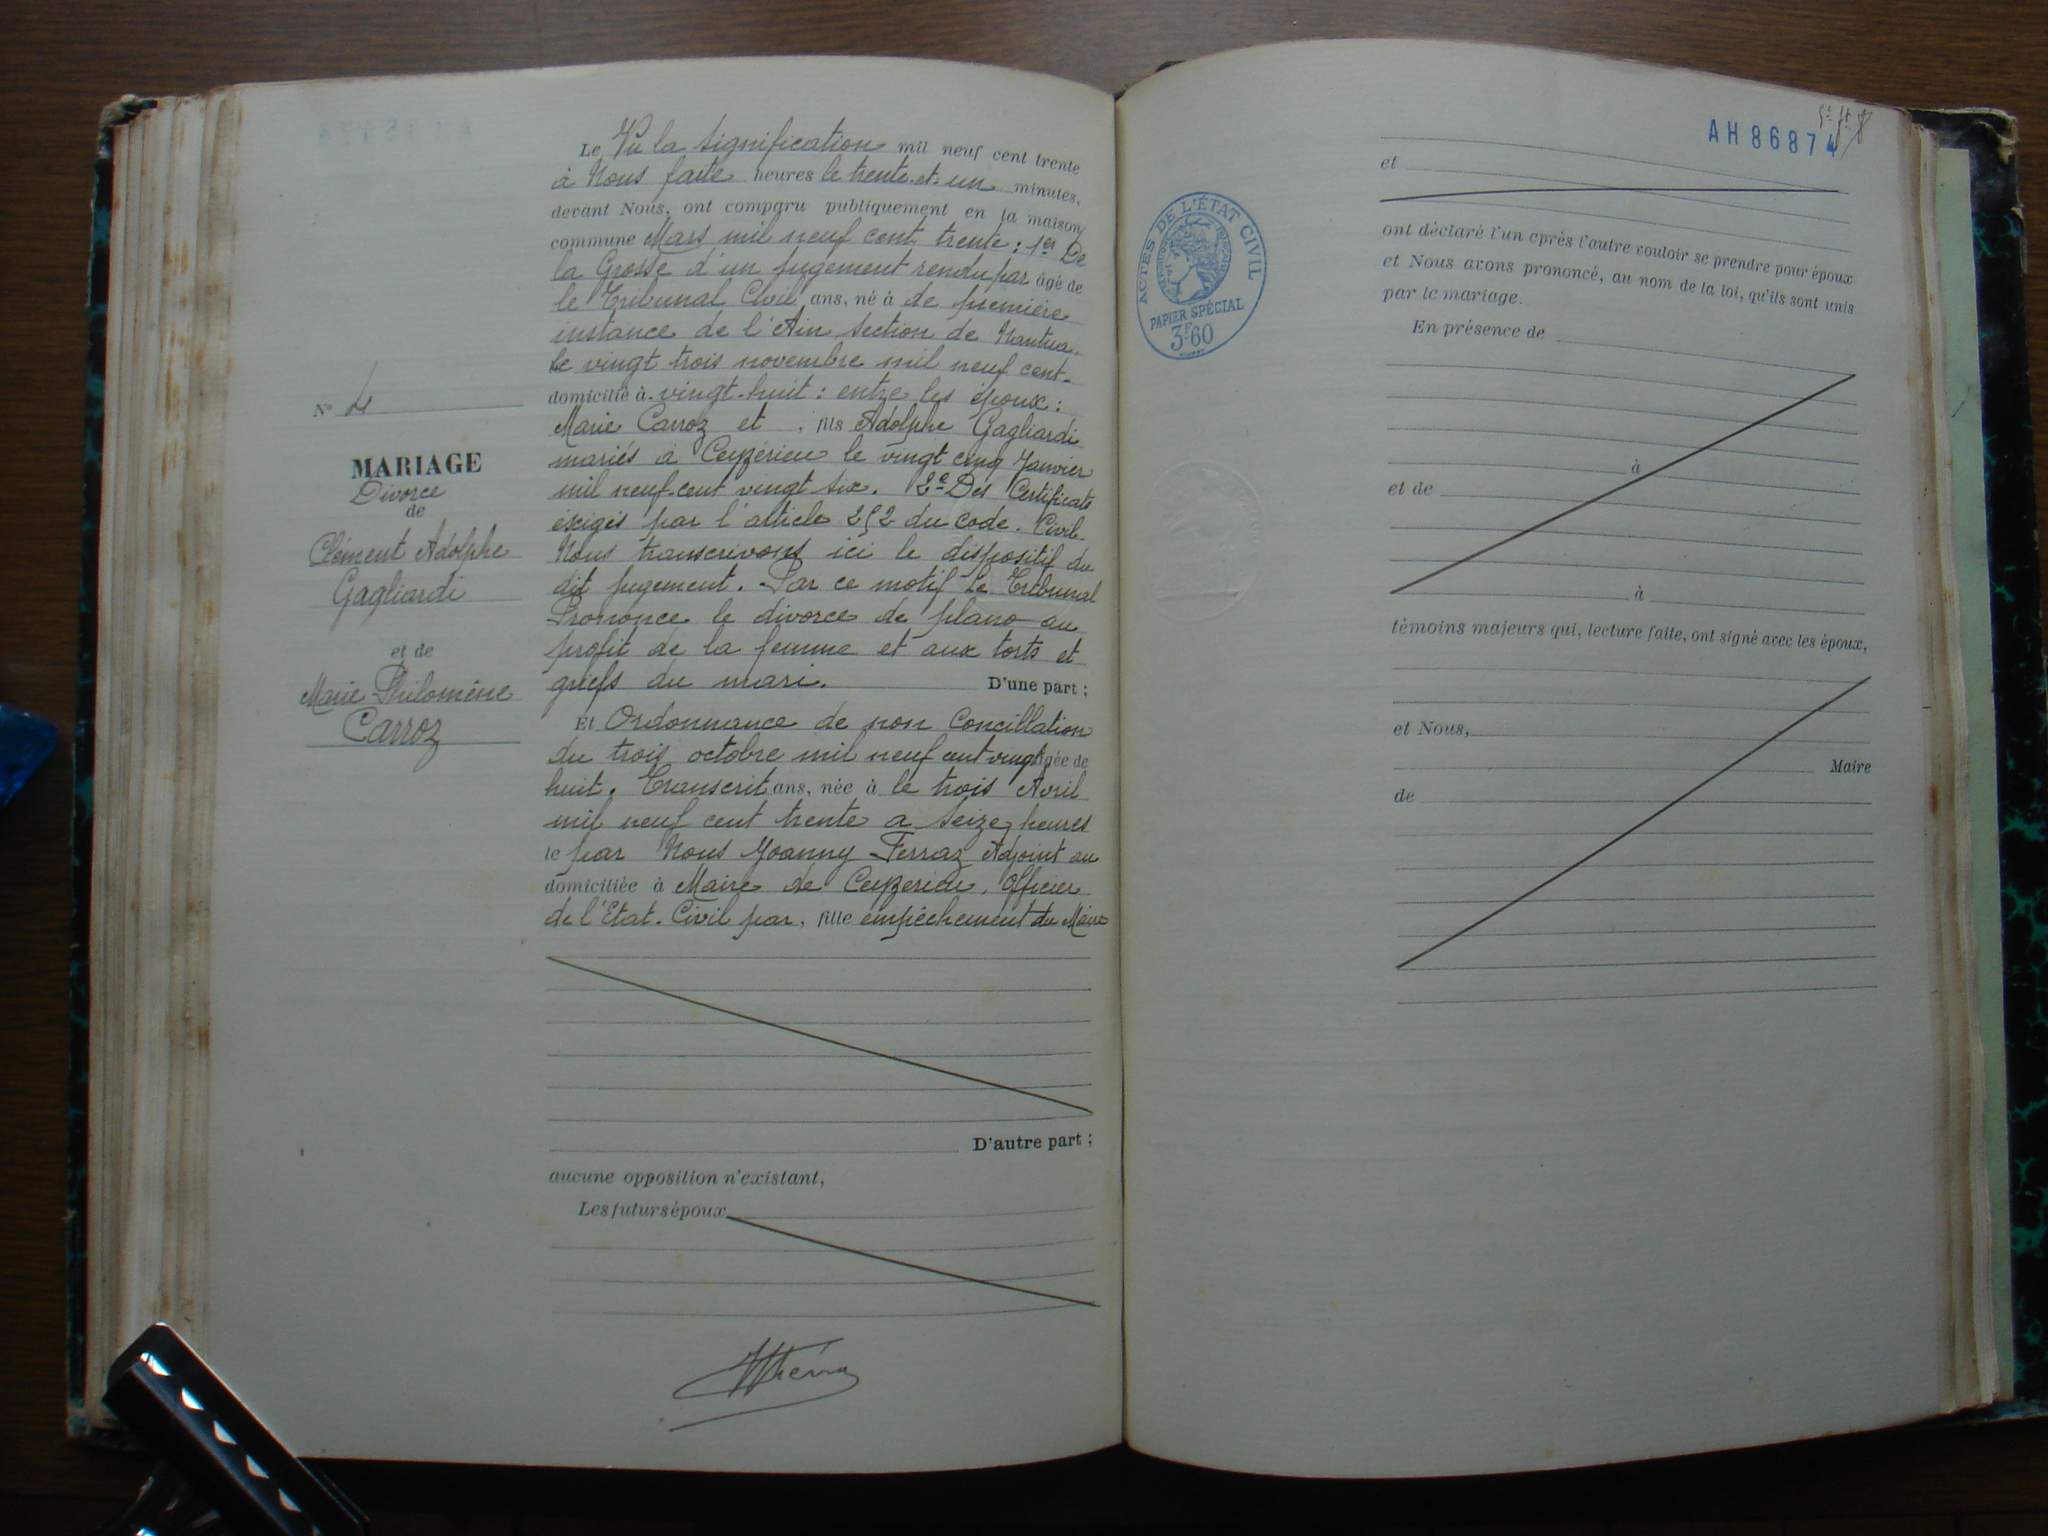 Le Vu la signification mil neuf cent trente
à Nous faite heures le trente-et-un minutes,
devant Nous, ont comparu publiquement en la maison
commune Mars mil neuf cent trente : 1er De
la Grosse d'un jugement rendu par âgé de
le Tribunal Civil ans, né à de première
instance de l'Ain section de Nantua.
le vingt trois novembre mil neuf cent-
domicilié à vingt-huit : entre les époux :
Marie Carroz et , fils Adolphe Gagliardi
N° 4
mariés à Ceyzérieu le vingt cinq Janvier
mil neuf-cent vingt six. 2e Des Certificats
éxigés par l'article 252 du Code. Civil.
Nous transcrivons ici le dispositif du
dit jugement. Par ce motif Le Tribunal
Prononce le divorce de plano au
profit de la femme et aux torts et
griefs du mari. D'une part ;
MARIAGE
Divorce
de
Clément Adolphe
Gagliardi
et de
Marie Philomène
Carroz
Et Ordonnance de non Concillation
du trois octobre mil neuf cent vingt âgée de
huit. Transcrit ans, née à le trois Avril
mil neuf cent trente a seize heures
le par Nous Joanny Ferraz Adjoint au
domiciliée à Maire de Ceyzerieu, Officier
de l'Etat. Civil par, fille empêchement du Maire
D'autre part ;
aucune opposition n'existant,
Les futurs époux
AH86874
et
ACTES DE L'ÉTAT CIVIL
PAPIER SPÉCIAL
3F60
ont déclaré l'un après l'autre vouloir se prendre pour époux
et Nous avons prononcé, au nom de la loi, qu'ils sont unis
par le mariage.
En présence de
à
et de
à
témoins majeurs qui, lecture faite, ont signé avec les époux,
et Nous,
Maire
de